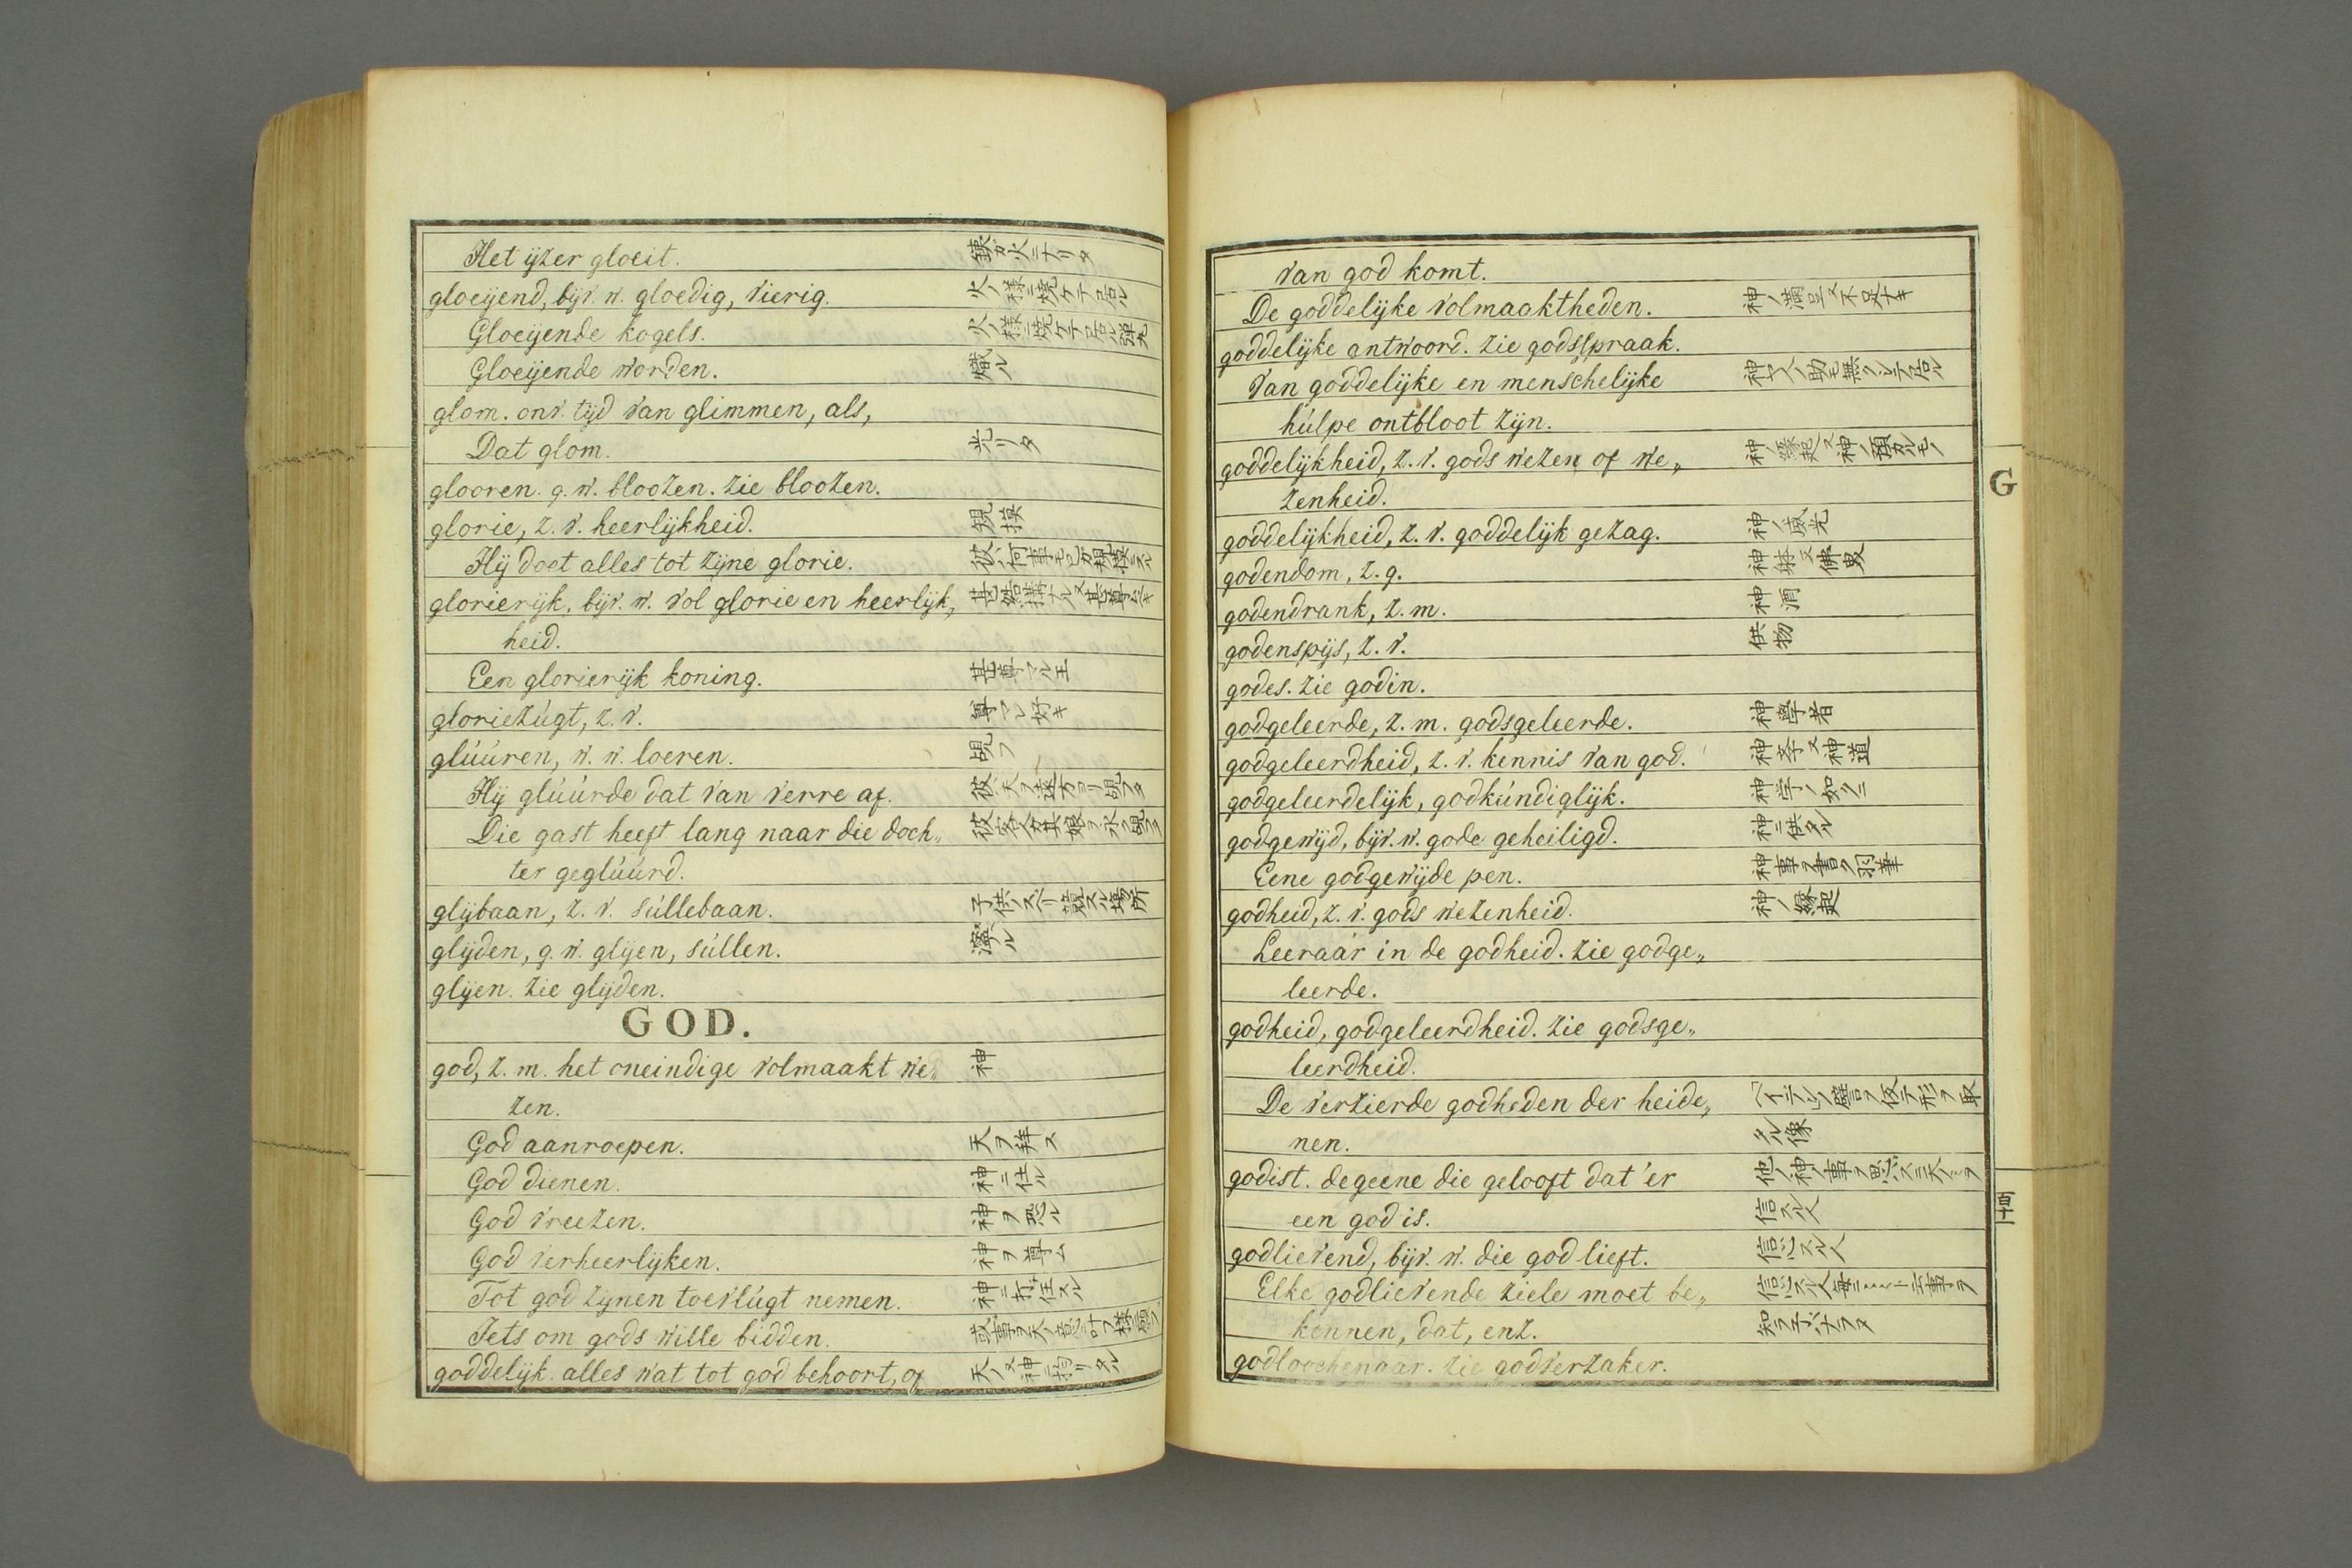 Het ijzer gloeit. 鉄ガ火ニナリタ
gloeijend, bijv. w. gloedig, vierig. 火ノ様ニ焼ケテ居ル
Gloeijende kogels. 火ノ様ニ焼ケテ居ル弾丸
Gloeijende worden. 熾ル
glom. onv. tijd van glimmen, als,
Dat glom. 光リタ
glooren. g. w. bloozen. zie bloozen.
glorie, z. v. heerlijkheid. 規摸
Hij doet alles tot zijne glorie. 彼ハ何事モ己ガ規模ニスル
glorierijk, bijv. w. vol glorie en heerlijk„ 甚結構ナル又甚尊キ
heid.
Een glorierijk koning. 甚尊マルヽ王
gloriezúgt, z. v. 尊マレ好キ
glúúren, w. w. loeren. 覘フ
Hij glúúrde dat van verre af. 彼ハ夫ヲ遠方ヨリ覘フタ
Die gast heeft lang naar die doch„ 彼客人ガ其娘ヲ永ク覘フタ
ter geglúúrd.
glijbaan, z. v. súllebaan. 子供ノスベリ競スル場所
glijden, g. w. glijen, súllen. 滑ル
glijen. zie glijden.
GOD.
god, z. m. het oneindige volmaakt we„ 神
zen.
God aanroepen. 天ヲ拜ス
God dienen. 神ニ仕ル
God vreezen. 神ヲ恐ル
God verheerlijken. 神ヲ尊ム
Tot god zijnen toevlúgt nemen. 神ニ打任スル
Iets om gods wille bidden. 或事ヲ天ノ意ニ叶フ様ニ願フ
goddelijk. alles wat tot god behoort, of 天ノ又神ニ拘リタル
van god komt.
De goddelijke volmaaktheden. 神ノ満足又不足ナキ
goddelijke antwoord. zie godsspraak.
Van goddelijke en menschelijke 神ヤ人ノ助モ無クシテ居ル
húlpe ontbloot zijn.
goddelijkheid, z. v. gods wezen of we„ 神ノ縁起又神ノ預カルモノ
zenheid.
goddelijkheid, z. v. goddelijk gezag. 神ノ威光
godendom, z. g.
godendrank, z. m. 神酒
godenspijs, z. v. 供物
godes. zie godin.
godgeleerde, z. m. godsgeleerde. 神學者
godgeleerdheid, z. v. kennis van god. 神学又神道
godgeleerdelijk, godkúndiglijk. 神学ノ如クニ
godgewijd, bijv. w. gode geheiligd. 神ニ供タル
Eene godgewijde pen. 神事ヲ書ク羽筆
godheid, z. v. gods wezenheid. 神ノ縁起
Leeraar in de godheid. zie godge„
leerde.
godheid, godgeleerdheid. zie godsge„
leerdheid.
De verzierde godheden der heide„
nen. タル像
godist. degeene die gelooft dat 'er
een god is. 信スル人
godlievend, bijv. w. die god lieft. 信心スル人
Elke godlievende ziele moet be„
kennen, dat, enz. 知ラ子バナラヌ
godloochenaar. zie godverzaker.
G